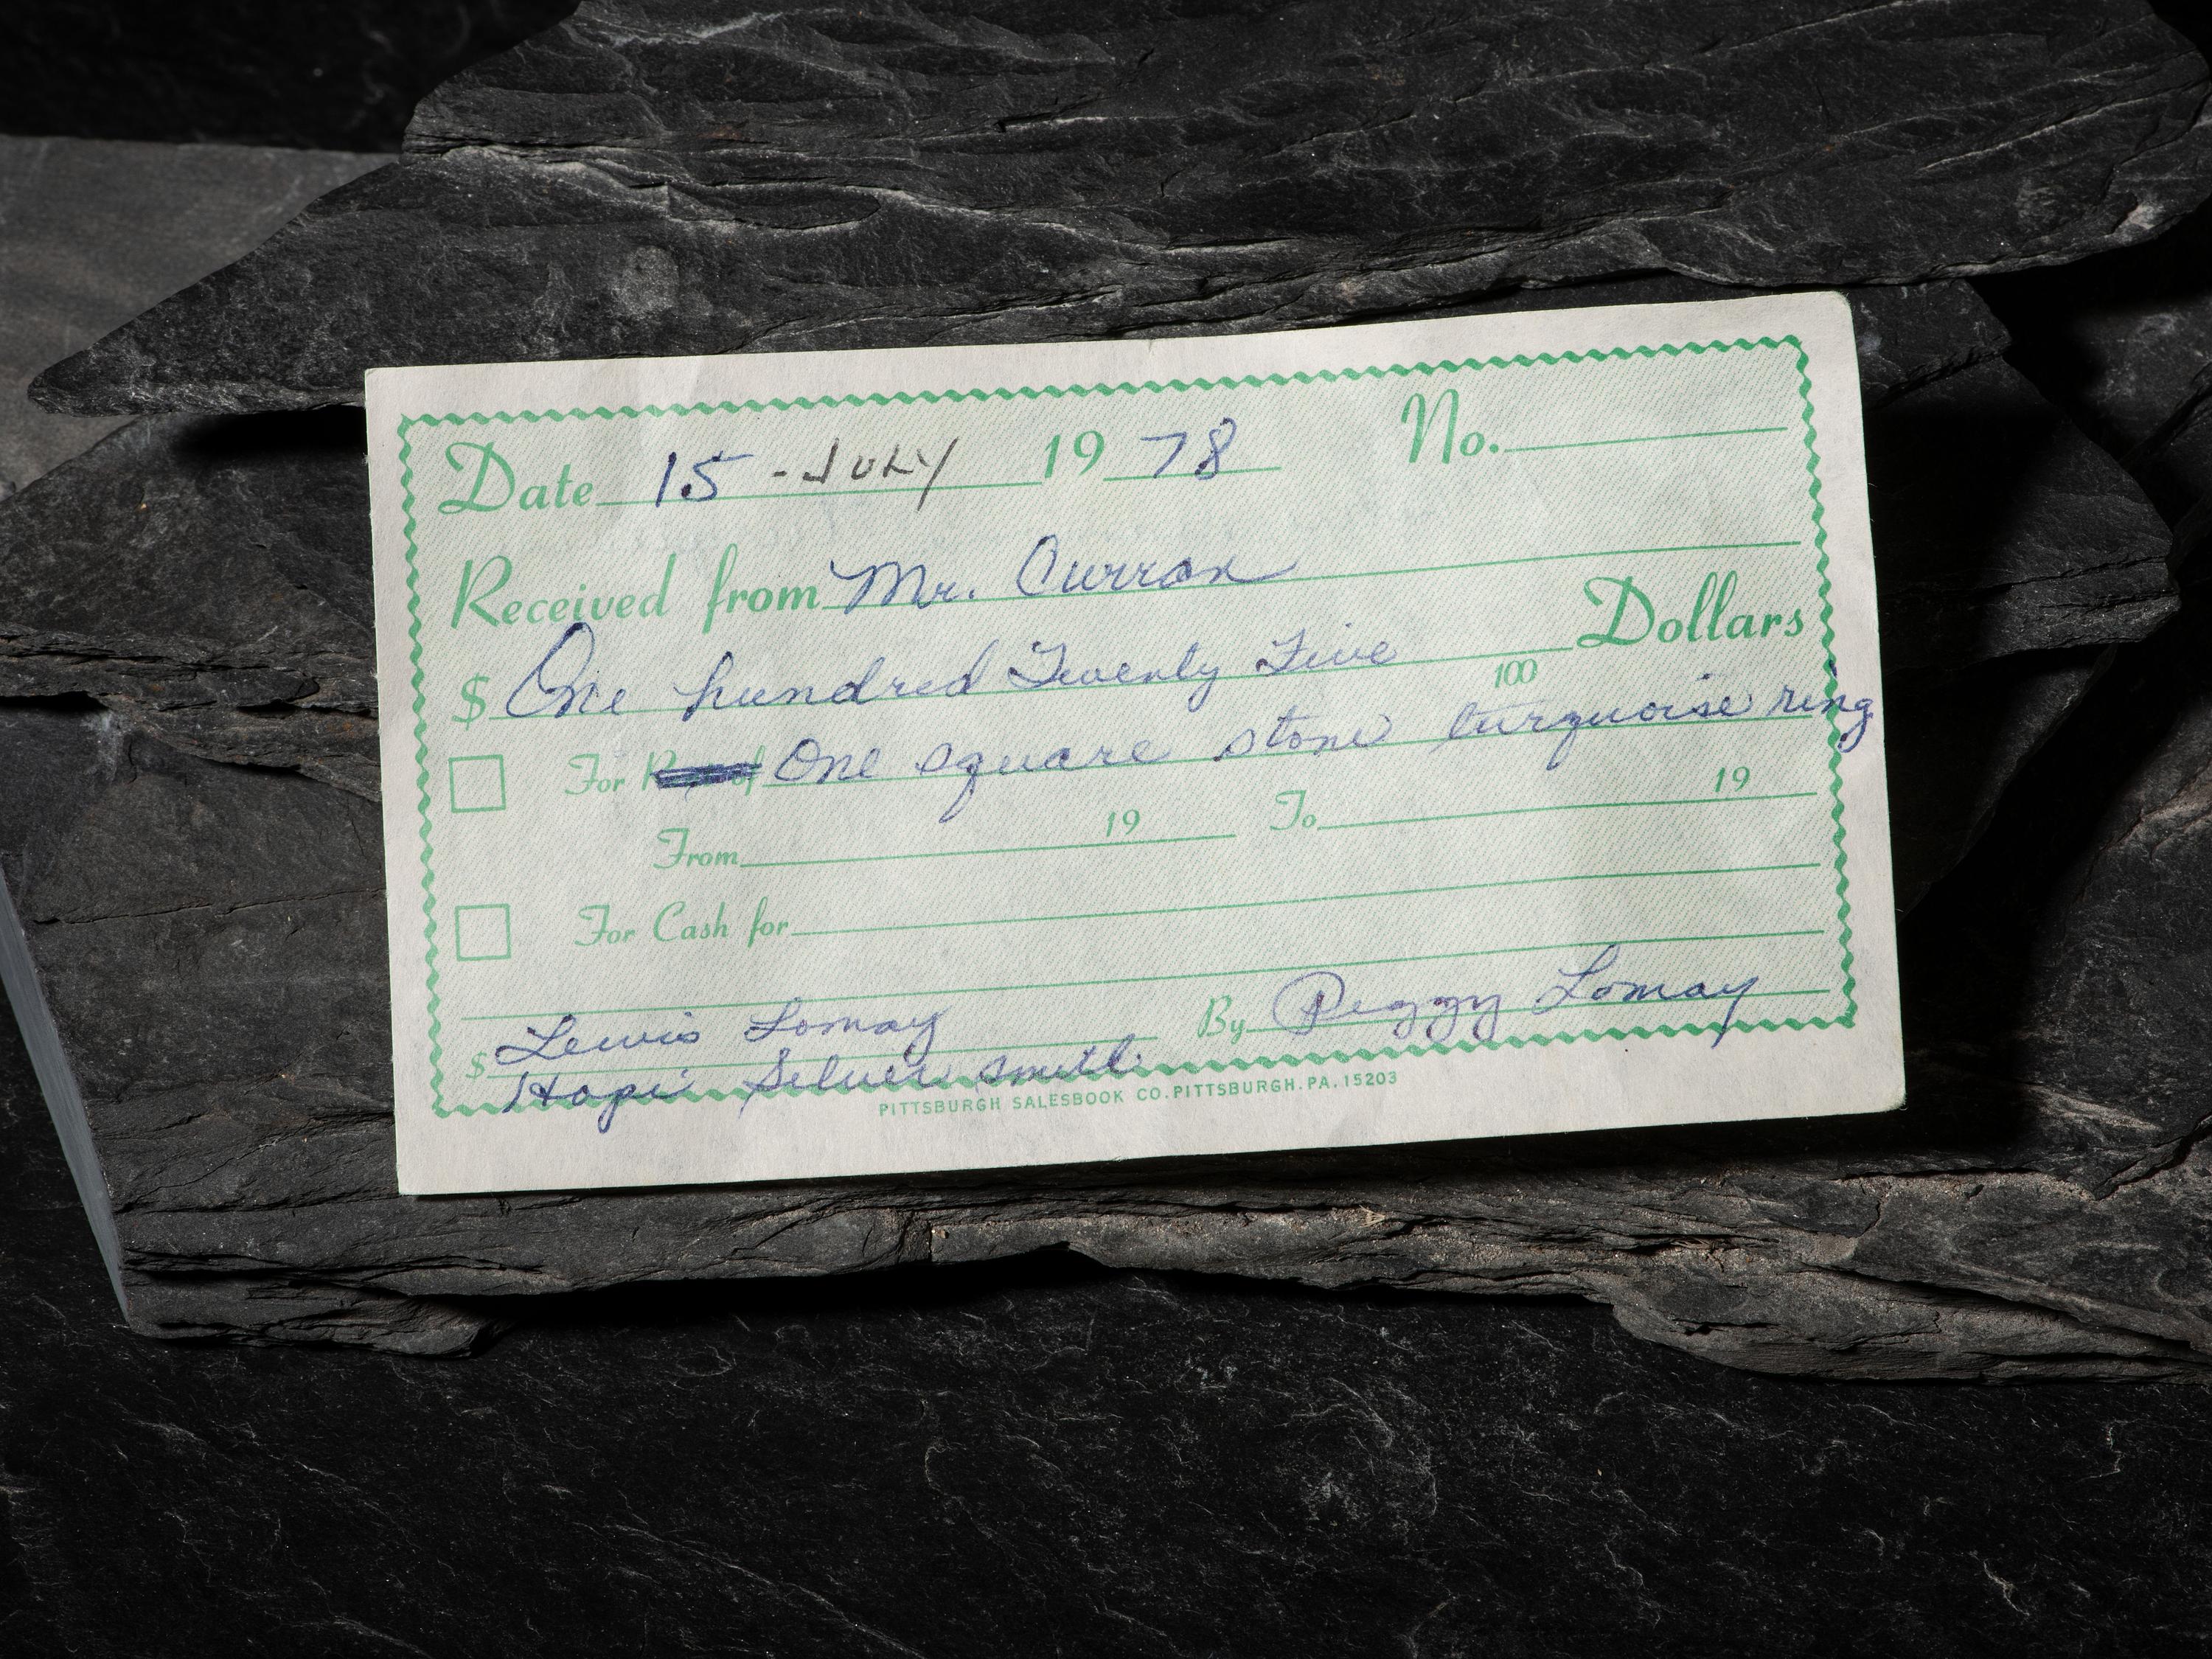 Date 15 - JULY 19 78 No.
Received from Mr. Curran
$ One hundred Twenty Five 100 Dollars
For of One square stone turquoise ring
From 19 To 19
For Cash for
Lewis Lomay By Peggy Lomay
$ Hopi Silver smith
PITTSBURGH SALESBOOK CO. PITTSBURGH. PA. 15203